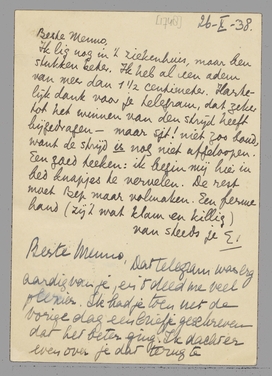 [1748]
26-X-38.
Beste Menno,
Ik lig nog in 't ziekenhuis, maar den
stukken beter. Ik heb al een adem
van meer dan 1 1/2 centimeter. Harte-
lijk dank voor je telegram, dat zeker
tot het winnen van den strijd heeft
bijgedragen – maar sst! niet zoo hard,
want de strijd is nog niet afgeloopen.
Een goed teeken: ik begin mij hier in
bed knapjes te vervelen. De rest
moet Bep maar volmaken. Een ferme
hand (zij 't wat klam en killig)
van steeds je E!
Beste Menno, Dat telegram was erg
aardig van je en 't deed me veel
plezier. Ik had je toen net de
vorige dag een briefje geschreven
dat het beter ging. Ik dacht er
even over je dat terug te